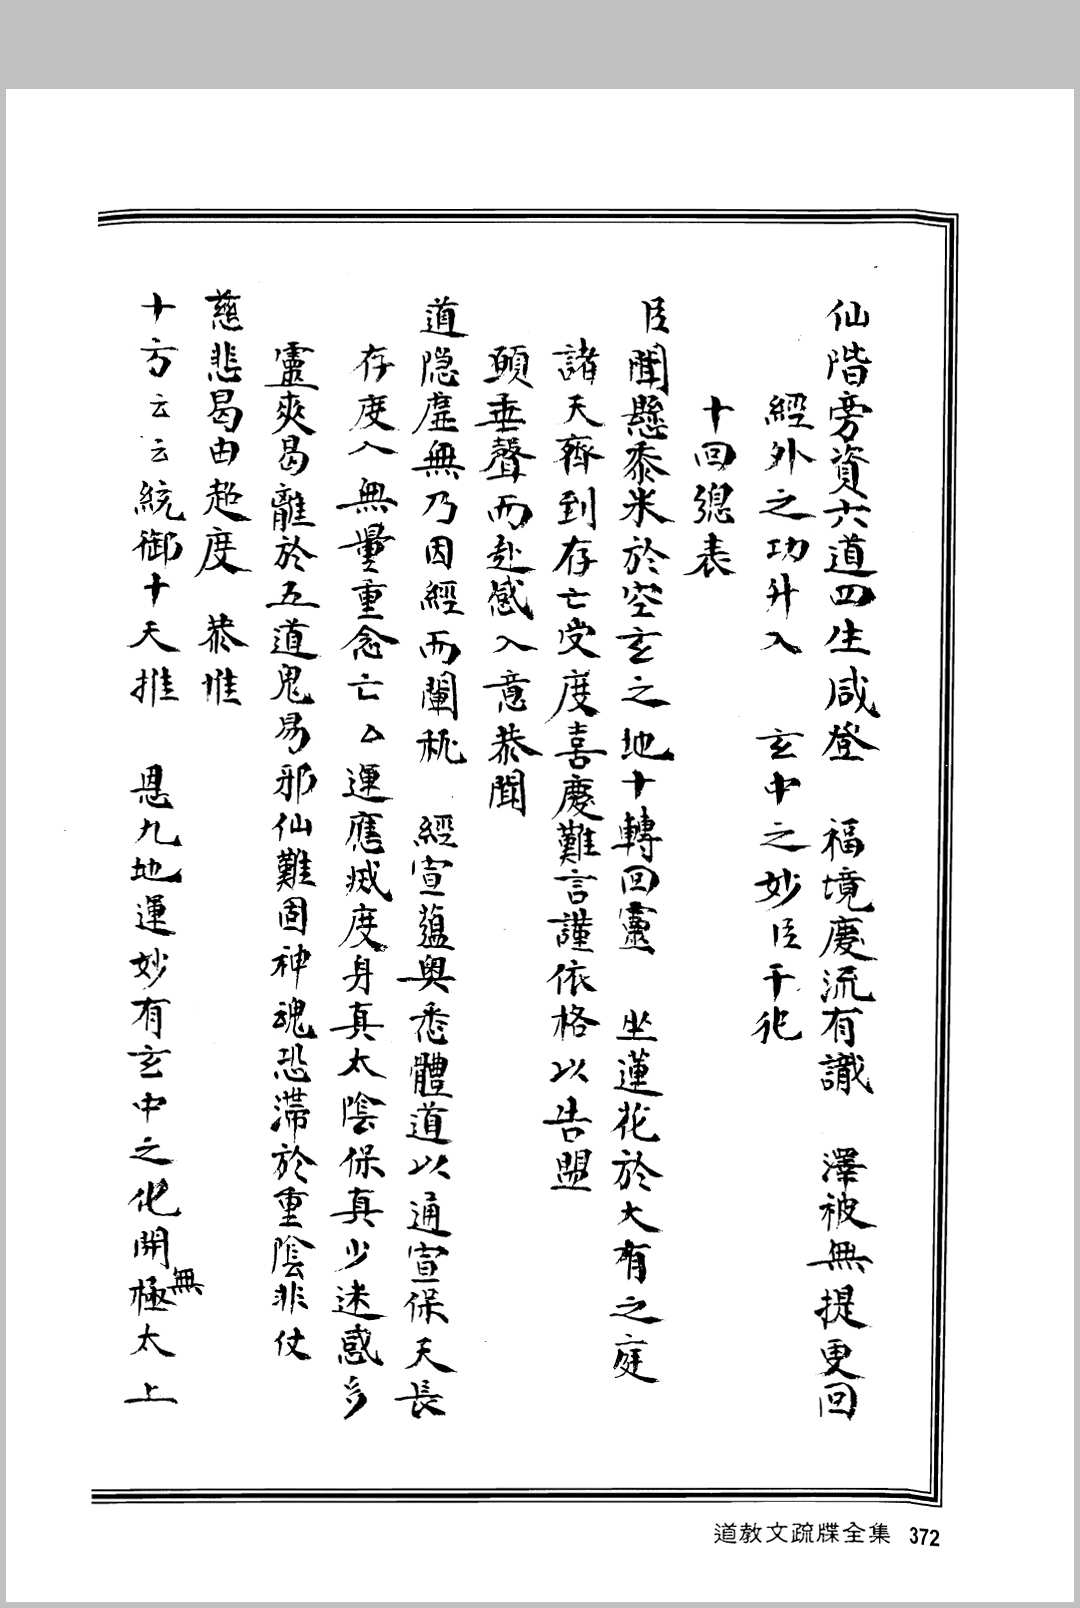 仙階旁資六道四生咸登　福境慶流有識　澤被無提更回
經外之功升入　玄中之妙臣干化
十回總表
臣聞懸黍米於空玄之地十轉回靈　坐蓮花於大有之庭
諸天齊到存亡受度喜慶難言謹依格以告盟
願垂聲而赴感入意恭聞
道隐虛無乃因經而闡秘　經宣蘊奥悉體道以通宣保天長
存度入無量重念亡厶運應滅度身真太陰保真少迷惑多
靈爽曷離於五道鬼易邪仙難固神魂恐滯於重陰非仗
慈悲曷由超度　恭惟
十方云云統御十天推　恩九地運妙有玄中之化開無極太上
道教文疏牒全集 372